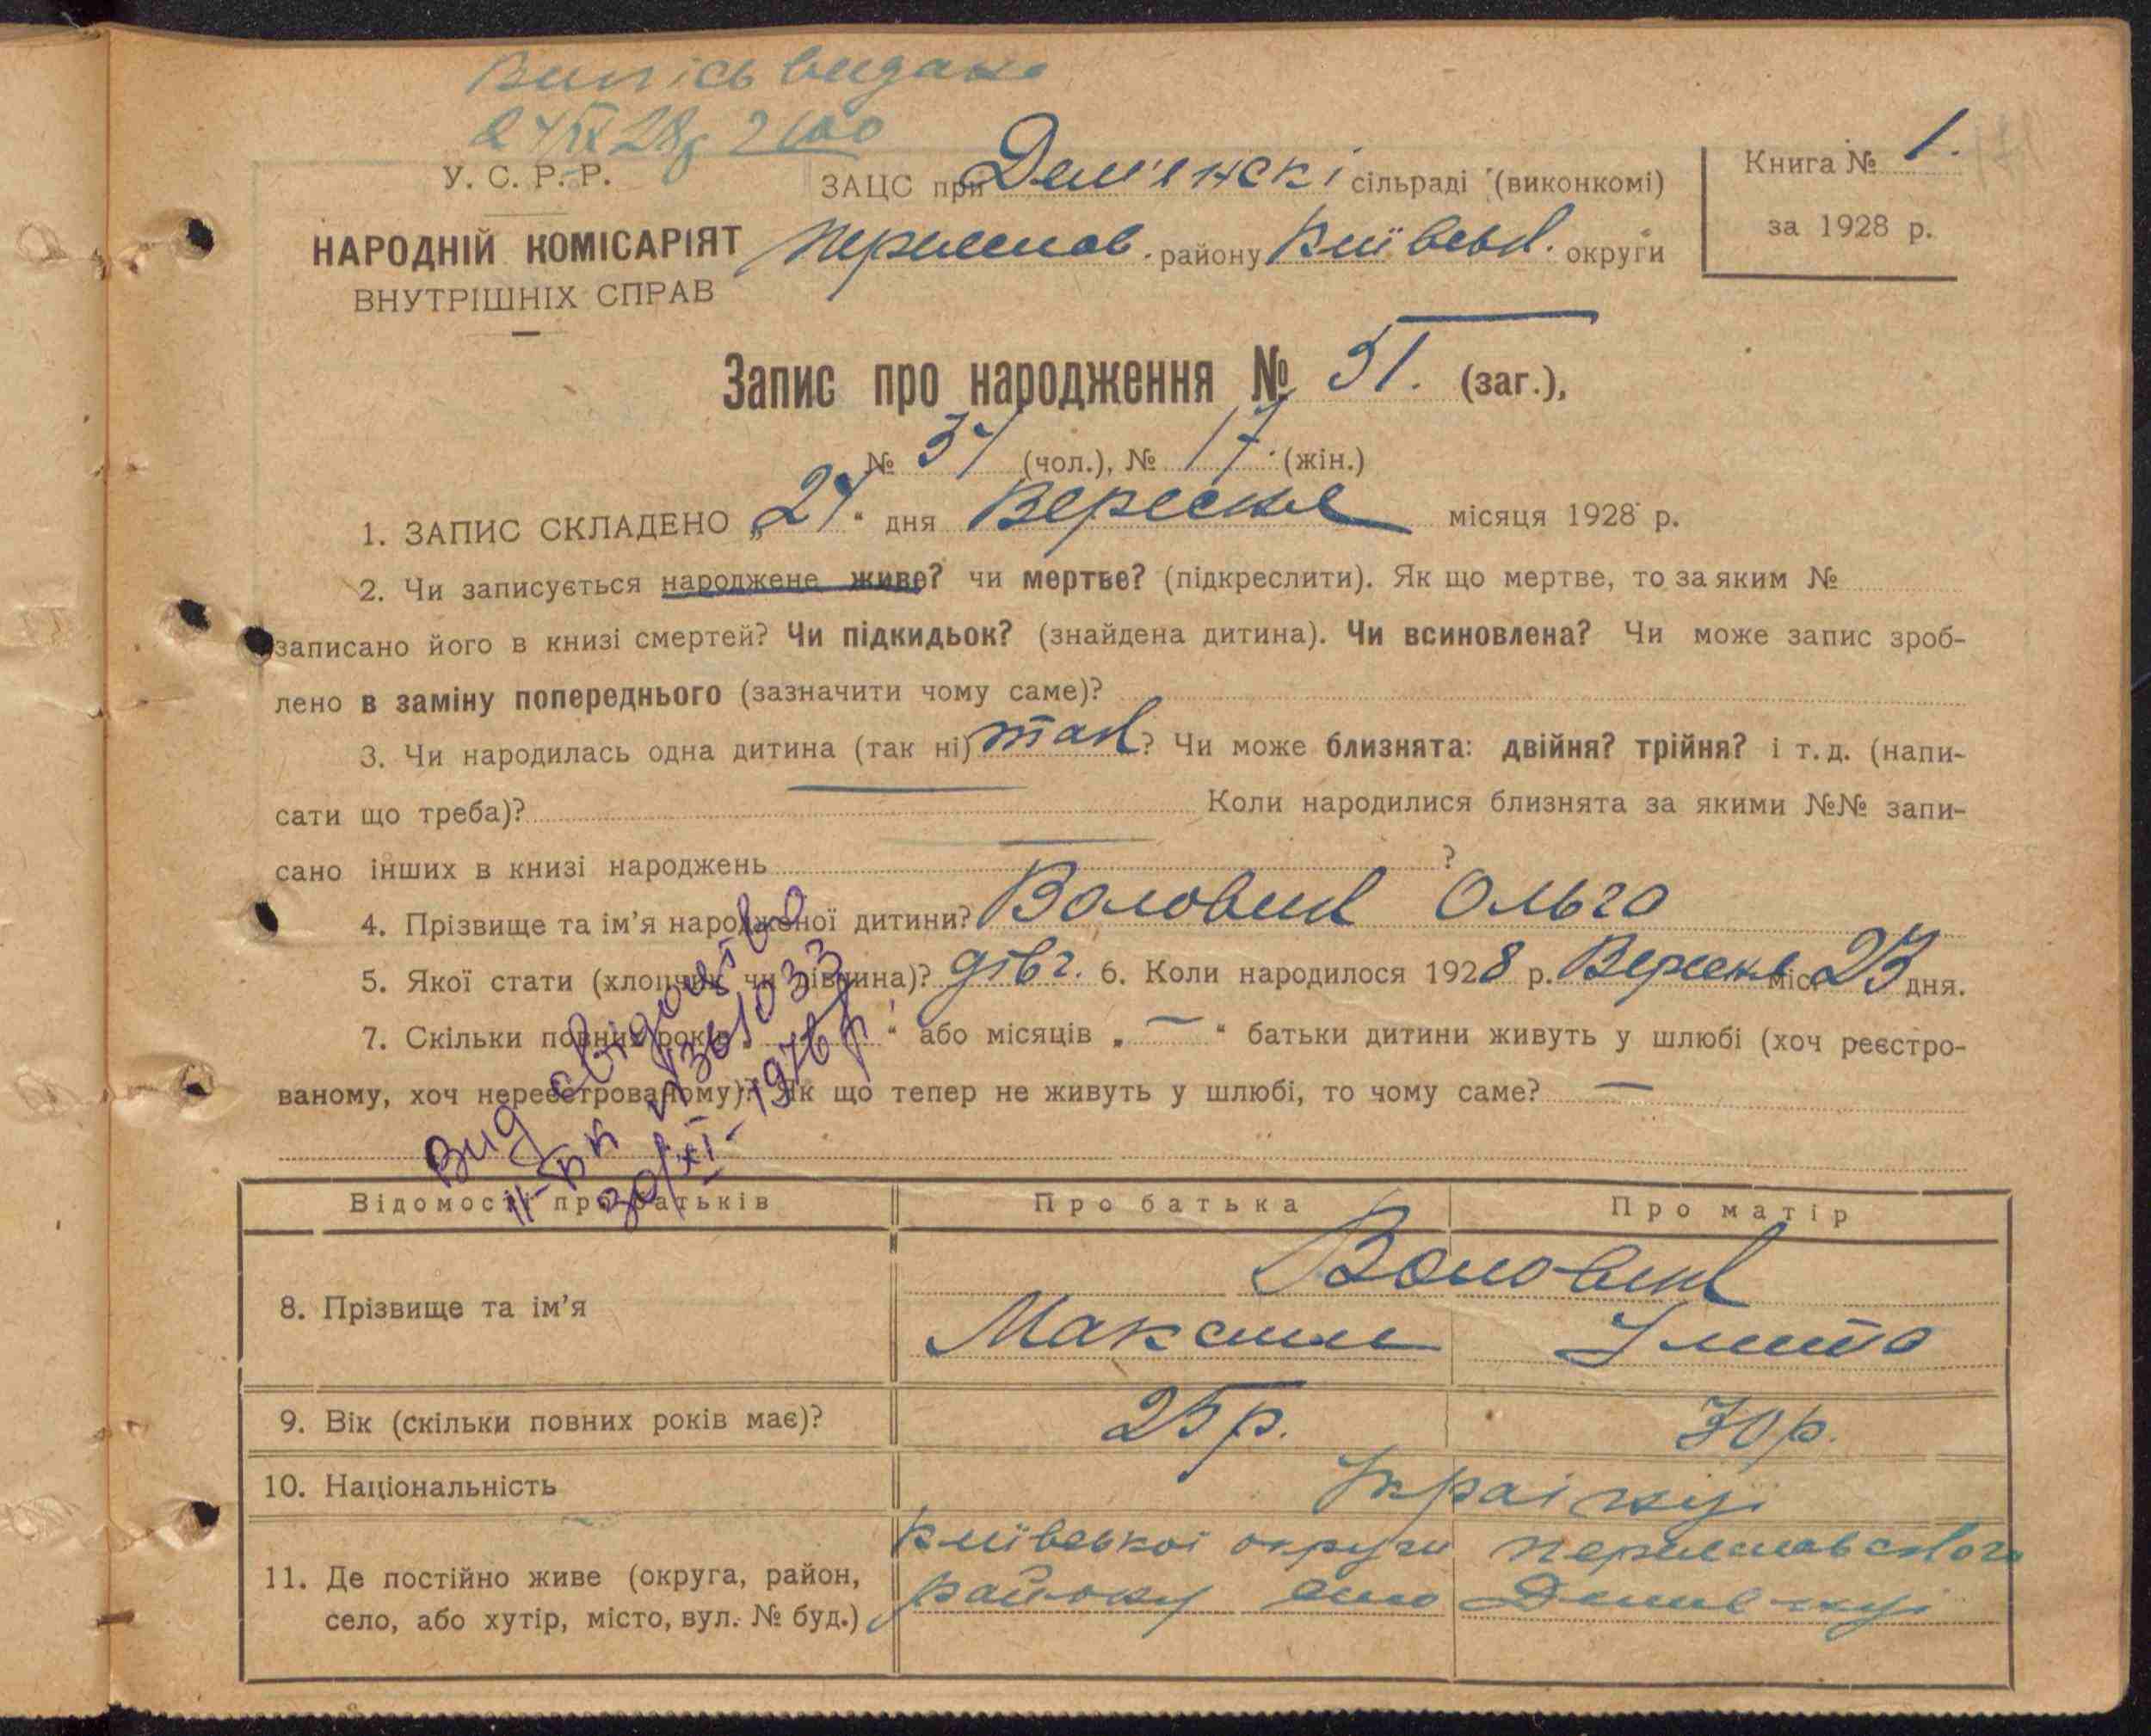 Випісь видана
У. С. Р. Р.
НАРОДНІЙ КОМІСАРІЯТ
ВНУТРІШНІХ СПРАВ
ЗАЦС при Дем'янскі сільраді (виконкомі)
Переяслав. району Київськ. округи
Книга № 1.
за 1928 р.
Запис про народження № 51. (заг.),
№ (чол.), № 17. (жін.)
1. ЗАПИС СКЛАДЕНО „24“ дня Вересня місяця 1928 р.
2. Чи записується народжене живе? чи мертве? (підкреслити). Як що мертве, то за яким №
записано його в книзі смертей? Чи підкидьок? (знайдена дитина). Чи всиновлена? Чи може запис зроб-
лено в заміну попереднього (зазначити чому саме)?
3. Чи народилась одна дитина (так ні) так? Чи може близнята: двійня? трійня? і т. д. (напи-
сати що треба)? Коли народилися близнята за якими №№ запи-
сано інших в книзі народжень ?
4. Прізвище та ім'я народженої дитини? Воловик Ольга
5. Якої стати (хлопчик чи дівчина)? дівч. 6. Коли народилося 1928 р. Вересня міс. 23 дня.
7. Скільки повних років „ “ або місяців „ — “ батьки дитини живуть у шлюбі (хоч реєстро-
ваному, хоч нереєстрованому)? Як що тепер не живуть у шлюбі, то чому саме? —
Вид свідоцтво
II-БК № 361033
30/XI-1976р
Відомості про батьків Про батька Про матір
8. Прізвище та ім'я Воловик
Максим Улита
9. Вік (скільки повних років має)? 25 р. 30 р.
10. Національність Українці
11. Де постійно живе (округа, район,
село, або хутір, місто, вул. № буд.)
Київської округи Переяславского
району село Демянці